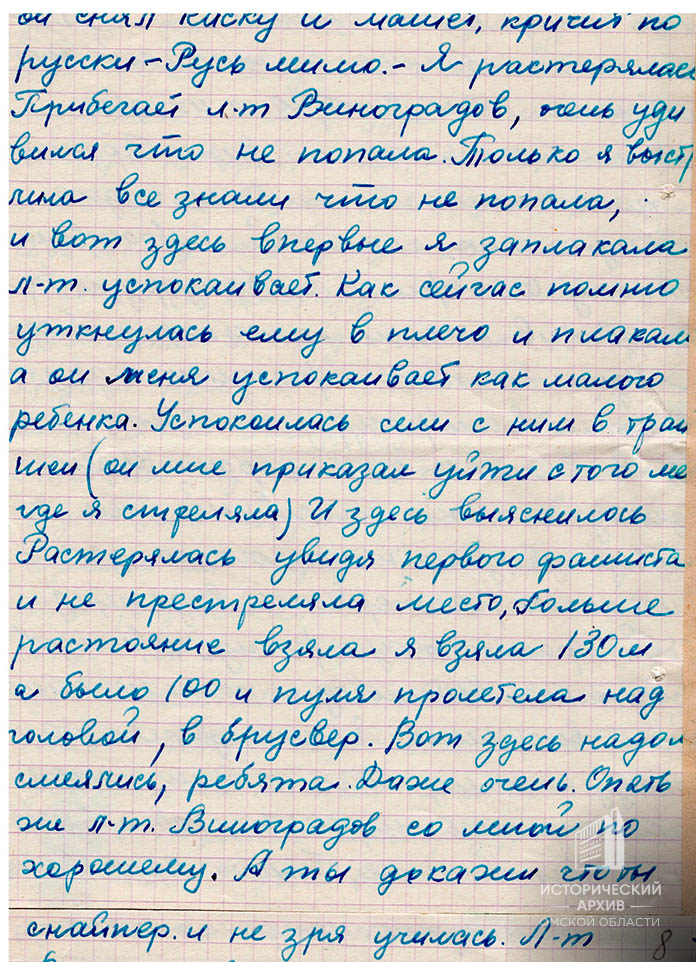 он снял каску и машет, кричит по
русски – Русь мимо. – Я растерялась
Прибегает л-т Виноградов, очень уди
вился что не попала. Только я выстр
лила все знали что не попала,
и вот здесь впервые я заплакала
л-т. успокаивает. Как сейчас помню
уткнулась ему в плечо и плакал
а он меня успокаивает как малого
ребенка. Успокоилась сели с ним в тран
шеи (он мне приказал уйти с того ме
где я стреляла) И здесь выяснилось
Растерялась увидя первого фашиста
и не престреляла место, больше
растояние взяла я взяла 130 м
а было 100 и пуля пролетела над
головой, в бруствер. Вот здесь надо
смеялись, ребята. Даже очень. Опять
же л-т. Виноградов со мной по
хорошему. А ты докажи что ты
снайпер. и не зря училась. Л-т
ИСТОРИЧЕСКИЙ
АРХИВ
ОМСКОЙ ОБЛАСТИ
8